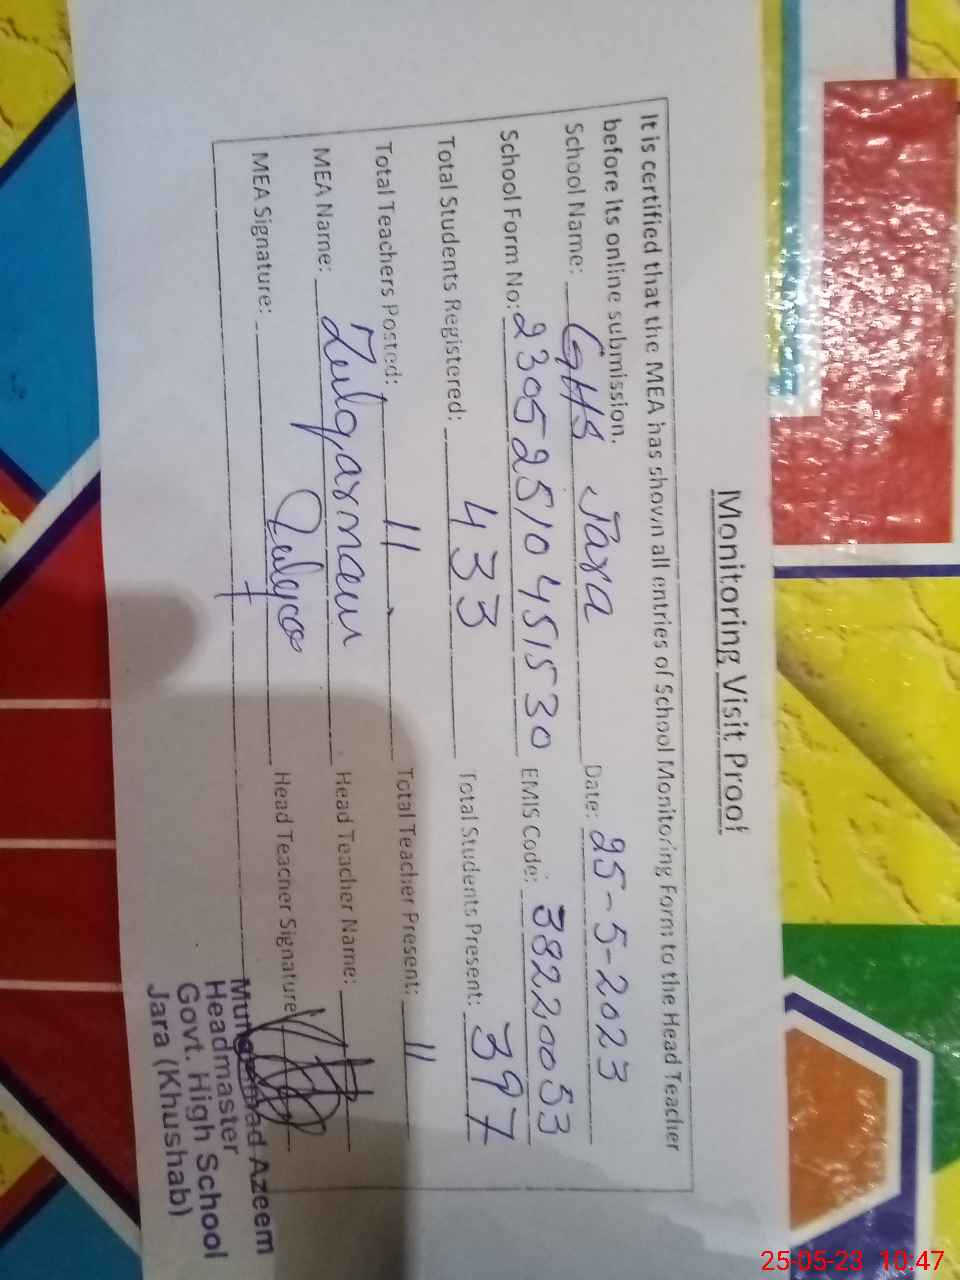 Monitoring Visit Proof
It is certified that the MEA has shown all entries of School Monitoring Form to the Head Teacher
before its online submission.
School Name: GHS Jara Date: 25-5-2023
School Form No: 23052510451530 EMIS Code: 38220053
Total Students Registered: 433 Total Students Present: 397
Total Teachers Posted: 11 Total Teacher Present: 11
MEA Name: Zulqarnain Head Teacher Name:
MEA Signature: Head Teacher Signature
Muhammad Azeem
Headmaster
Govt. High School
Jara (Khushab)
25-05-23 10:47